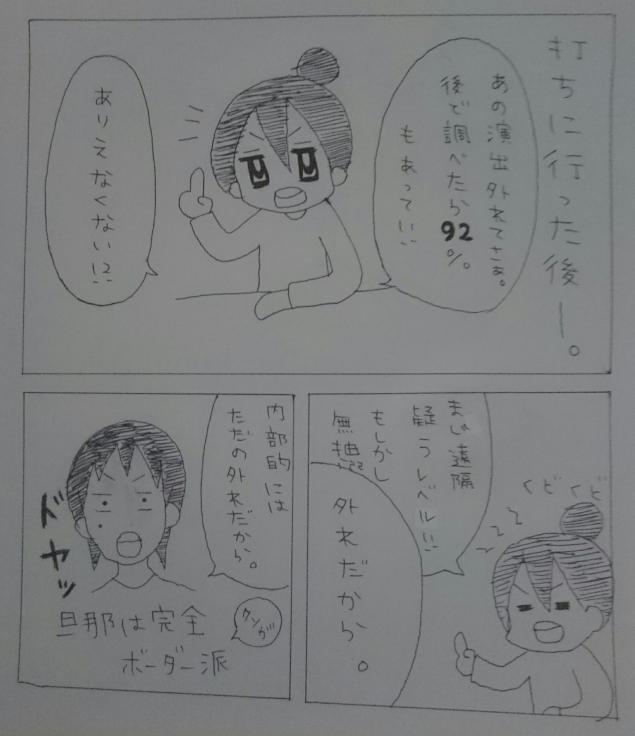 打ちに行った後ー。
あの演出外れてさぁ。
後で調べたら92%
もあってい
ありえなくない!?
まじ遠隔
疑うレベルい
もしかし
無抽選
くどくど
外れだから。
内部的には
ただの外れだから。
ドヤッ
旦那は完全
ボーダー派